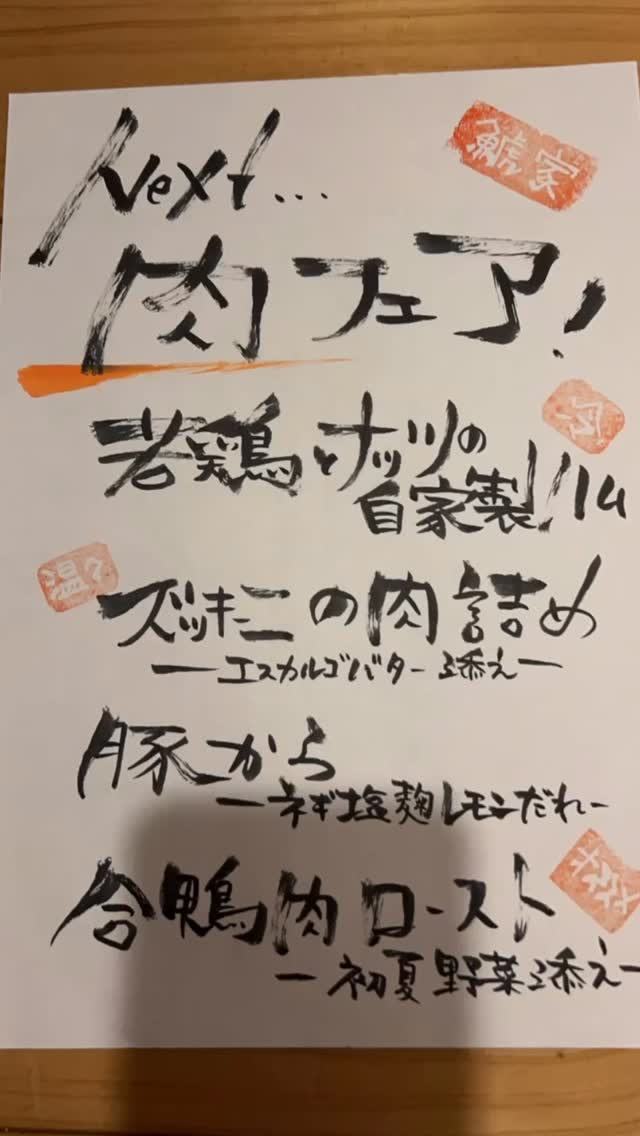 Next...
肉フェア!
若鶏とナッツの
自家製ハム
ズッキーニの肉詰め
ーエスカルゴバター添えー
豚から
ーネギ塩麹レモンだれー
合鴨肉ロースト
ー初夏野菜添えー
冷
温々